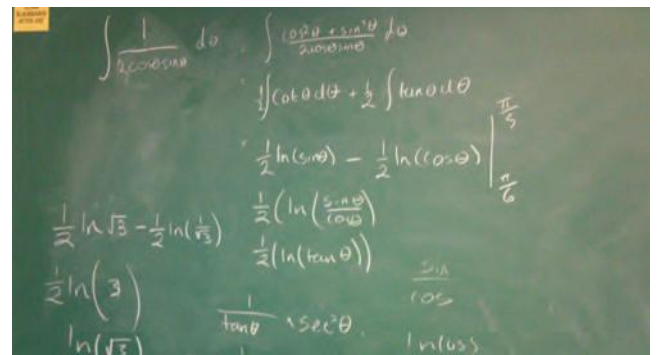 ∫ 1/(2cosθsinθ) dθ = ∫ (cos²θ + sin²θ)/(2cosθsinθ) dθ
= 1/2 ∫ cotθdθ + 1/2 ∫ tanθdθ
= 1/2 ln(sinθ) - 1/2 ln(cosθ) |
π/6
1/2 (ln(sinθ/cosθ)
1/2 (ln(tanθ))
1/2 ln √3 - 1/2 ln(1/√3)
1/2 ln(3)
ln(√3)
1/tanθ · sec²θ.
sin/cos